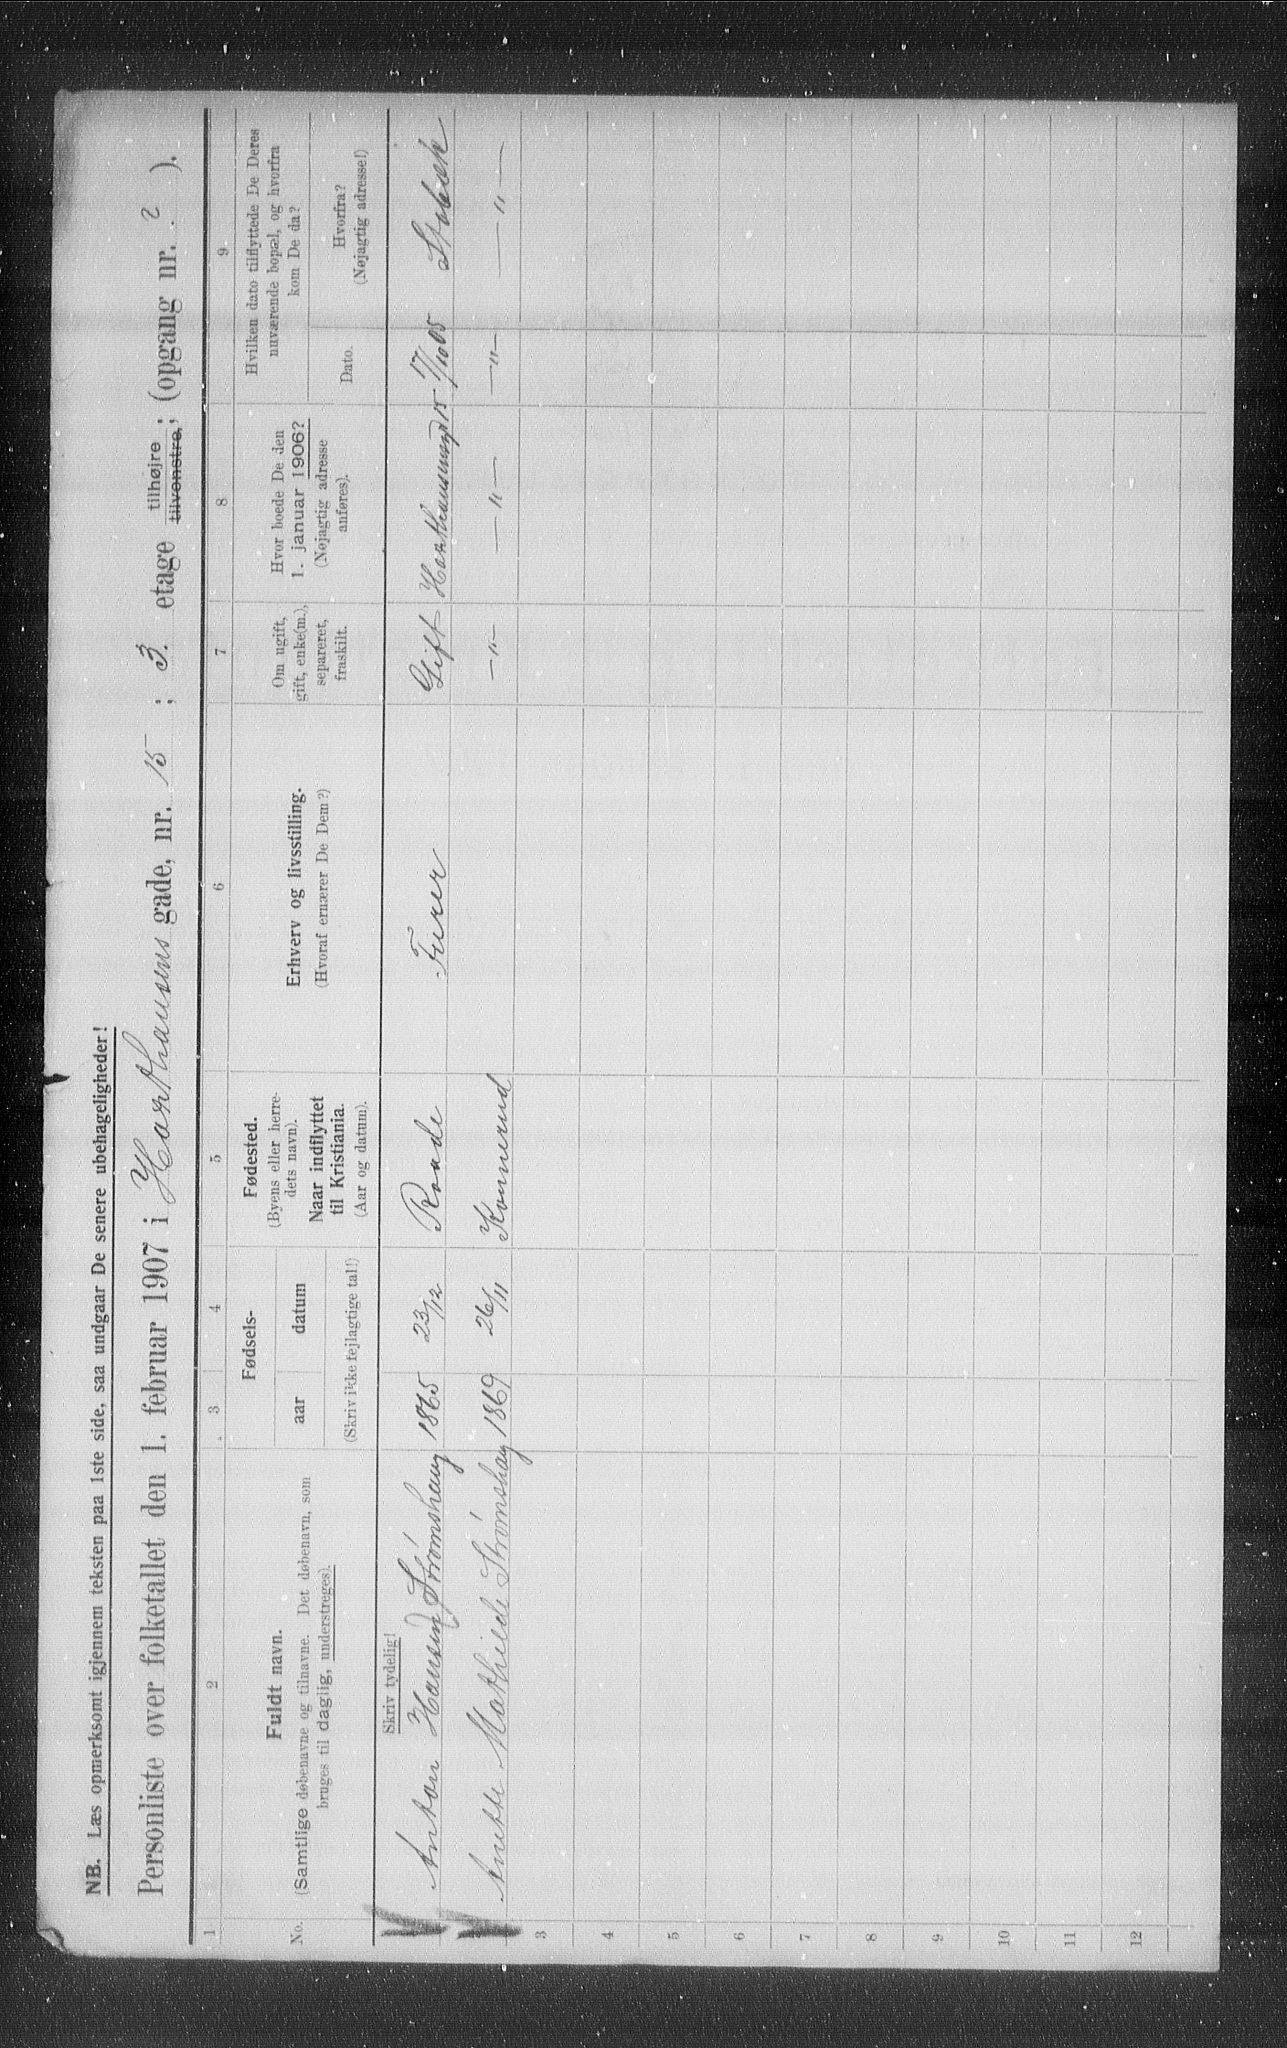 NB. Læs opmerksomt igjennem teksten paa 1ste side, saa undgaar De senere ubehageligheder!
Personliste over folketallet den 1. februar 1907 i Haxthausens gade, nr. 15 ; 3. etage tilhøjre tilvenstre, ; (opgang nr. 2 ).
1 2 3 4 5 6 7 8 9
No.
Fuldt navn.
(Samtlige døbenavne og tilnavne. Det døbenavn, som
bruges til daglig, understreges).
Fødsels-
aar datum
(Skriv ikke fejlagtige tal!)
Fødested.
(Byens eller herre-
dets navn).
Naar indflyttet
til Kristiania.
(Aar og datum).
Erhverv og livsstilling.
(Hvoraf ernærer De Dem?)
Om ugift,
gift, enke(m.),
separeret,
fraskilt.
Hvor boede De den
1. januar 1906?
(Nøjagtig adresse
anføres).
Hvilken dato tilflyttede De Deres
nuværende bopæl, og hvorfra
kom De da?
Dato.
Hvorfra?
(Nøjagtig adresse!)
Skriv tydelig!
Anton Hansen Strømshaug 1865 23/12 Raade Furer Gift Haxthausensgd 15 17/10 05 Stabæk
Anette Mathilde Strømshaug 1869 26/11 Konnerud —"— —"— —"— —"—
3
4
5
6
7
8
9
10
11
12